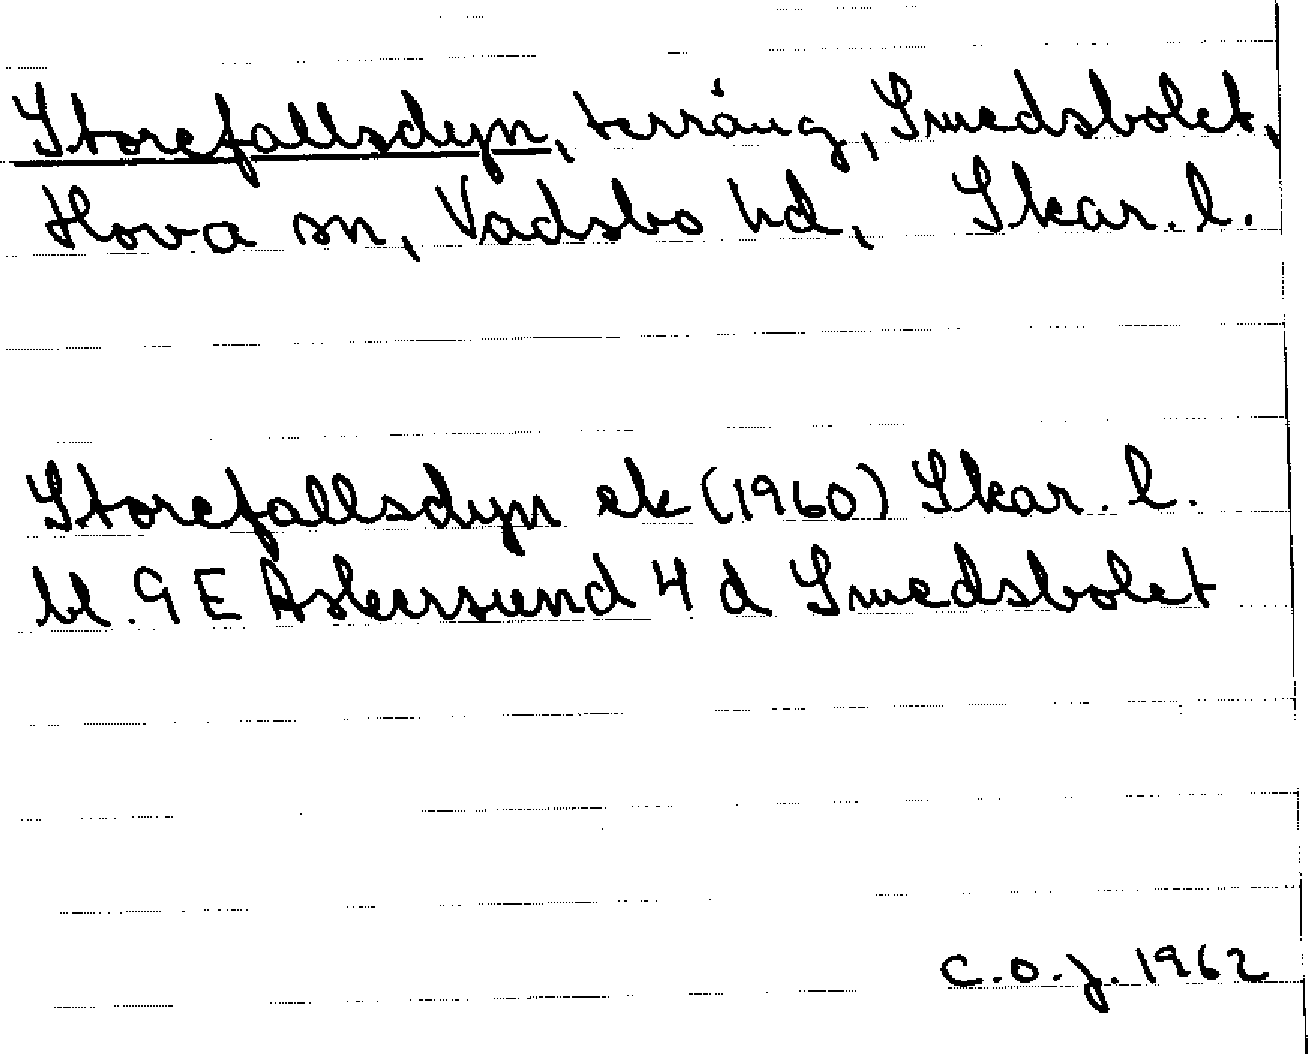 Storefallsdyn, terräng, Smedsbolet,
Hova sn, Vadsbo hd, Skar. l.
Storefallsdyn ek (1960) Skar. l.
bl. 9 E Askersund 4 d Smedsbolet
C.O.J. 1962